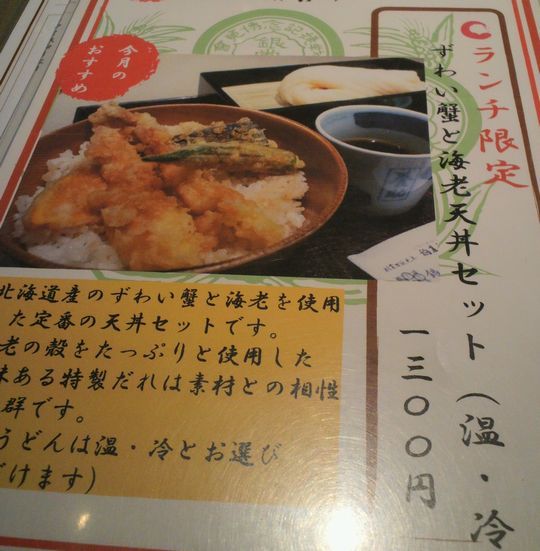 ランチ限定
ずわい蟹と海老天丼セット（温・冷
一三〇〇円
今月の
おすすめ
北海道産のずわい蟹と海老を使用
た定番の天丼セットです。
老の殻をたっぷりと使用した
味ある特製だれは素材との相性
群です。
うどんは温・冷とお選び
だけます）